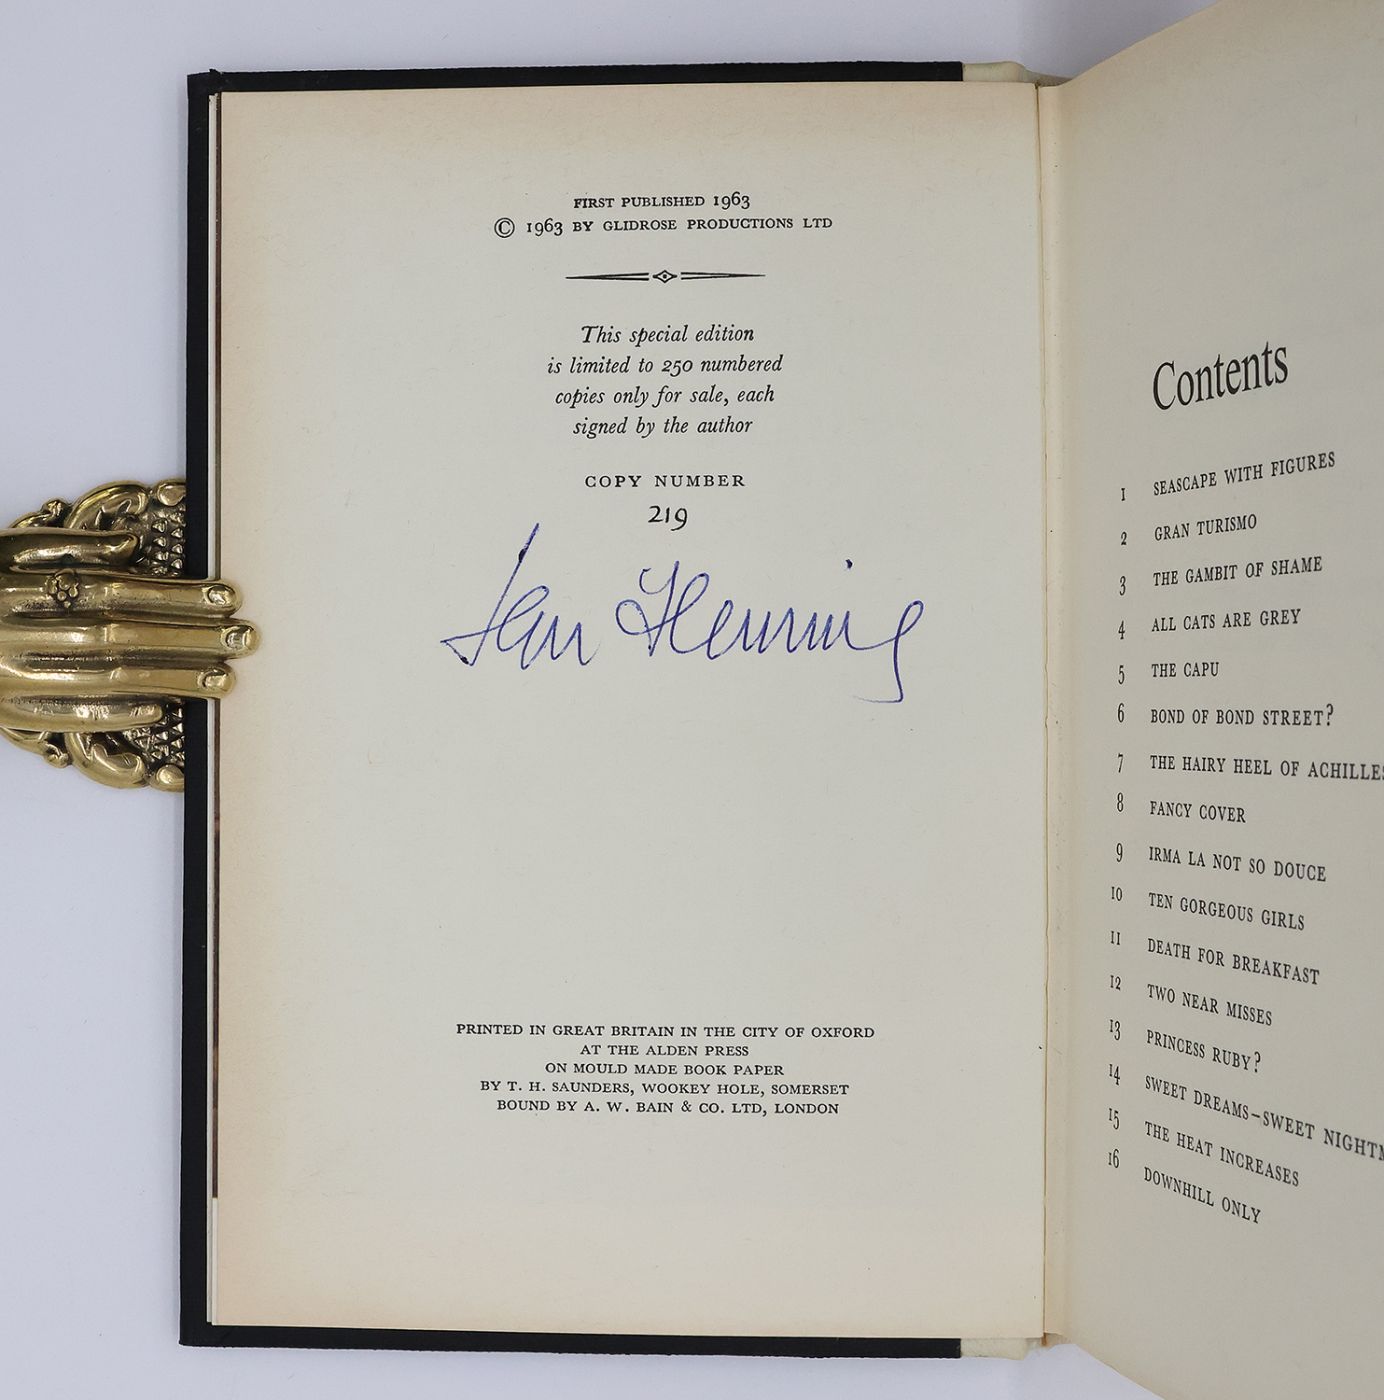 FIRST PUBLISHED 1963
© 1963 BY GLIDROSE PRODUCTIONS LTD
This special edition
is limited to 250 numbered
copies only for sale, each
signed by the author
COPY NUMBER
219
Ian Fleming
PRINTED IN GREAT BRITAIN IN THE CITY OF OXFORD
AT THE ALDEN PRESS
ON MOULD MADE BOOK PAPER
BY T. H. SAUNDERS, WOOKEY HOLE, SOMERSET
BOUND BY A. W. BAIN & CO. LTD, LONDON
Contents
1 SEASCAPE WITH FIGURES
2 GRAN TURISMO
3 THE GAMBIT OF SHAME
4 ALL CATS ARE GREY
5 THE CAPU
6 BOND OF BOND STREET?
7 THE HAIRY HEEL OF ACHILLES
8 FANCY COVER
9 IRMA LA NOT SO DOUCE
10 TEN GORGEOUS GIRLS
11 DEATH FOR BREAKFAST
12 TWO NEAR MISSES
13 PRINCESS RUBY?
14 SWEET DREAMS–SWEET NIGHTM
15 THE HEAT INCREASES
16 DOWNHILL ONLY